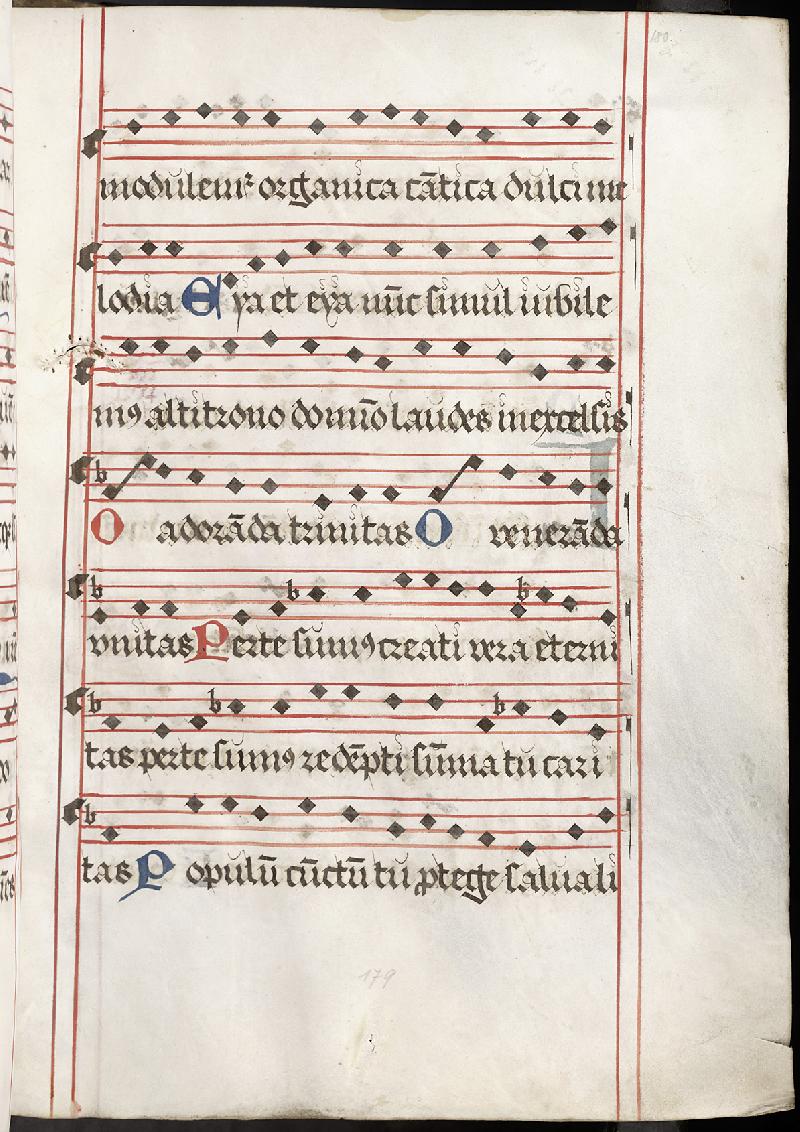 180.
modulem᷑ organica cātica dulci me
lodia Eya et eya nūc simul iubile
mꝰ altitrono domīo laudes in excelsis
O adorāda trinitas O venerāda
vnitas Per te sumꝰ creati vera eterni
tas per te sumꝰ redēpti sūma tu cari
tas Populū cūctū tu ꝓtege salua li
179